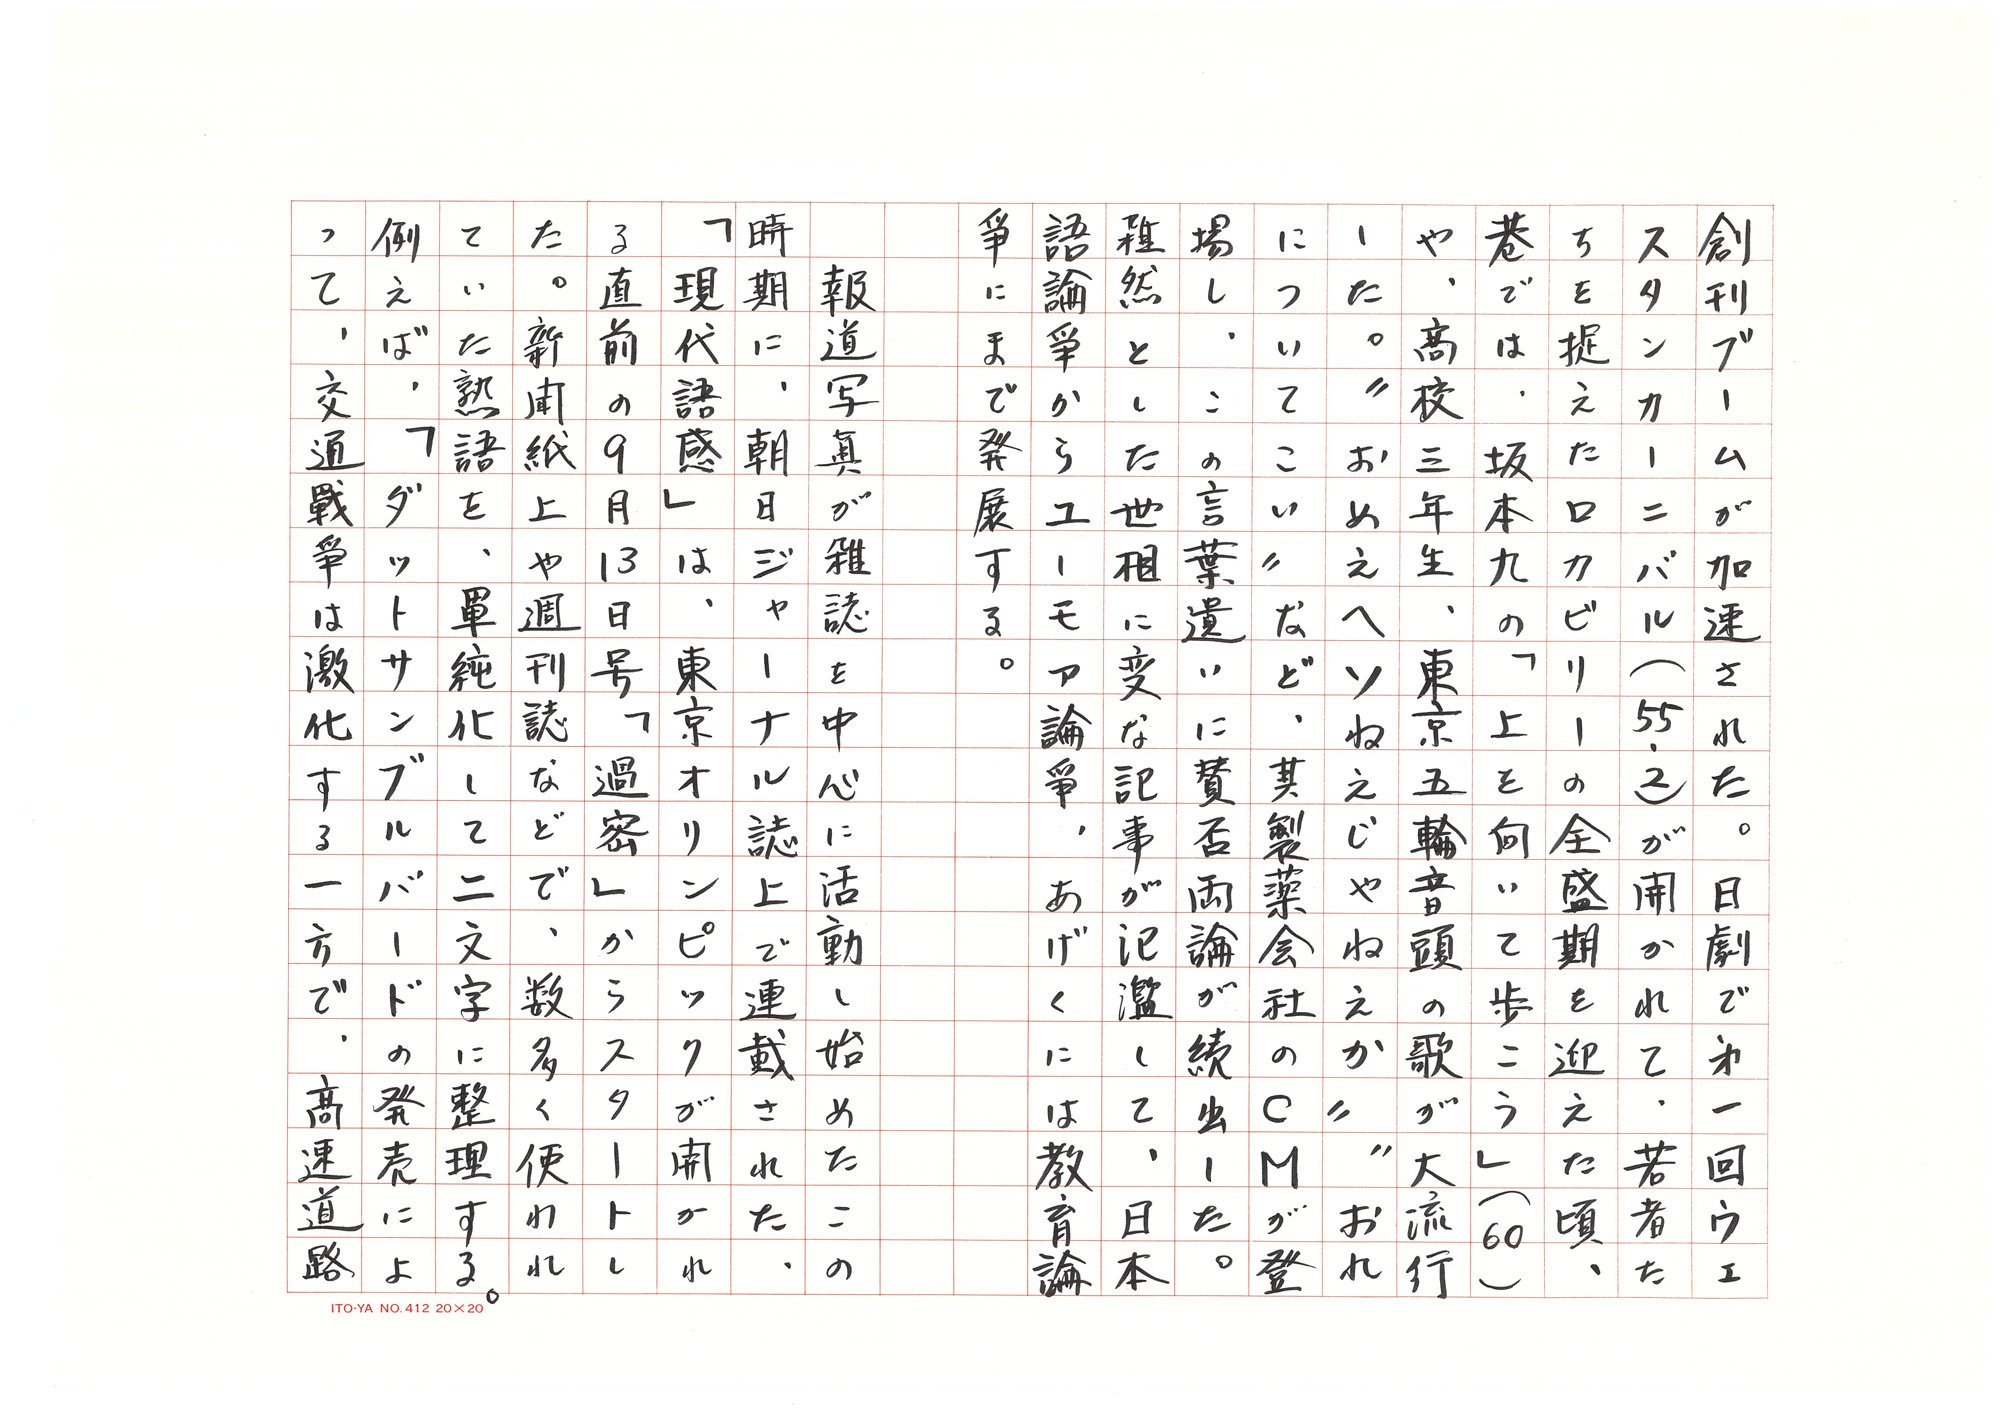 創刊ブームが加速された。日劇で第一回ウェ
スタンカーニバル(55.2)が開かれて、若者た
ちを捉えたロカビリーの全盛期を迎えた頃、
巷では、坂本九の「上を向いて歩こう」(60)
や、高校三年生、東京五輪音頭の歌が大流行
した。〝おめえヘソねえじゃねえか〟〝おれ
についてこい〟など、某製薬会社のCMが登
場し、この言葉遣いに賛否両論が続出した。
雑然とした世相に変な記事が氾濫して、日本
語論争からユーモア論争、あげくには教育論
争にまで発展する。
報道写真が雑誌を中心に活動し始めたこの
時期に、朝日ジャーナル誌上で連載された、
「現代語感」は、東京オリンピックが開かれ
る直前の9月13日号「過密」からスタートし
た。新聞紙上や週刊誌などで、数多く使われ
ていた熟語を、単純化して二文字に整理する。
例えば、「ダットサンブルバードの発売によ
って、交通戦争は激化する一方で、高速道路
ITO-YA NO.412 20×20